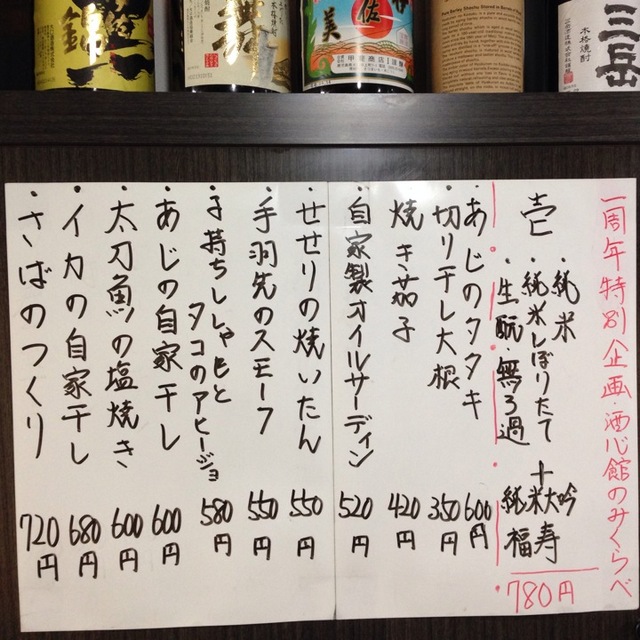 一周年特別企画・酒心館のみくらべ
壱
・純米
・純米しぼりたて
・生酛 無ろ過
十
純米大吟
福寿
780円
・あじのタタキ 600円
・切り干し大根 350円
・焼き茄子 420円
・自家製オイルサーディン 520円
・せせりの焼いたん 550円
・手羽先のスモーク 550円
・子持ちししゃもと
タコのアヒージョ 580円
・あじの自家干し 600円
・太刀魚の塩焼き 600円
・イカの自家干し 680円
・さばのつくり 720円
錦
本格焼酎
美
佐
三岳
本格焼酎